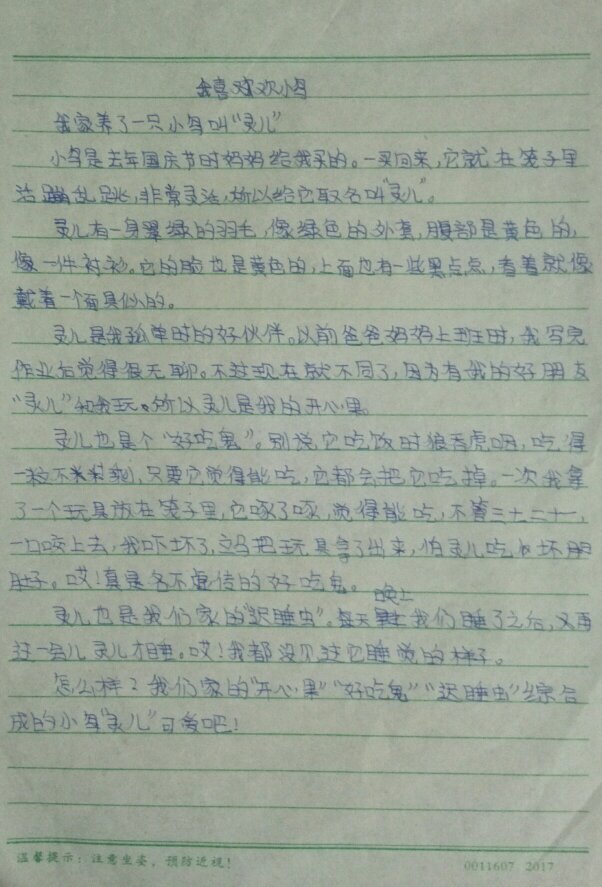 我喜欢小鸟
我家养了一只小鸟叫“灵儿”
小鸟是去年国庆节时妈妈给我买的。一买回来,它就在笼子里
活蹦乱跳,非常灵活,所以给它取名叫“灵儿”。
灵儿有一身翠绿的羽毛,像绿色的外套,腹部是黄色的,
像一件衬衫。它的脸也是黄色的,上面也有一些黑点点,看着就像
戴着一个面具似的。
灵儿是我孤单时的好伙伴。以前爸爸妈妈上班时,我写完
作业后觉得很无聊。不过现在就不同了,因为有我的好朋友
“灵儿”和我玩。所以灵儿是我的开心果
灵儿也是个“好吃鬼”。别说它吃饭时狼吞虎咽,吃得
一粒不剩,只要它觉得能吃,它都会把它吃掉。一次我拿
了一个玩具放在笼子里,它啄了啄,觉得能吃,不管三七二十一,
一口咬上去,我吓坏了,立马把玩具拿了出来,怕灵儿吃坏
肚子。哎!真是名不虚传的好吃鬼。
灵儿也是我们家的“迟睡虫”。每天晚上我们睡了之后,又再
过一会儿灵儿才睡。哎!我都没见过它睡觉的样子。
怎么样?我们家的“开心果”“好吃鬼”“迟睡虫”综合
成的小鸟“灵儿”可爱吧!
温馨提示:注意坐姿,预防近视!
0011607 2017